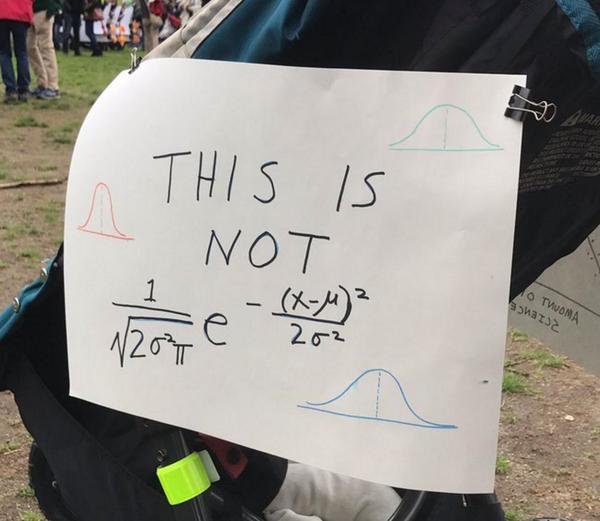 THIS IS
NOT
1/√2σ²π e^-(x-μ)²/2σ²
AMOUNT OF
SCIENCE